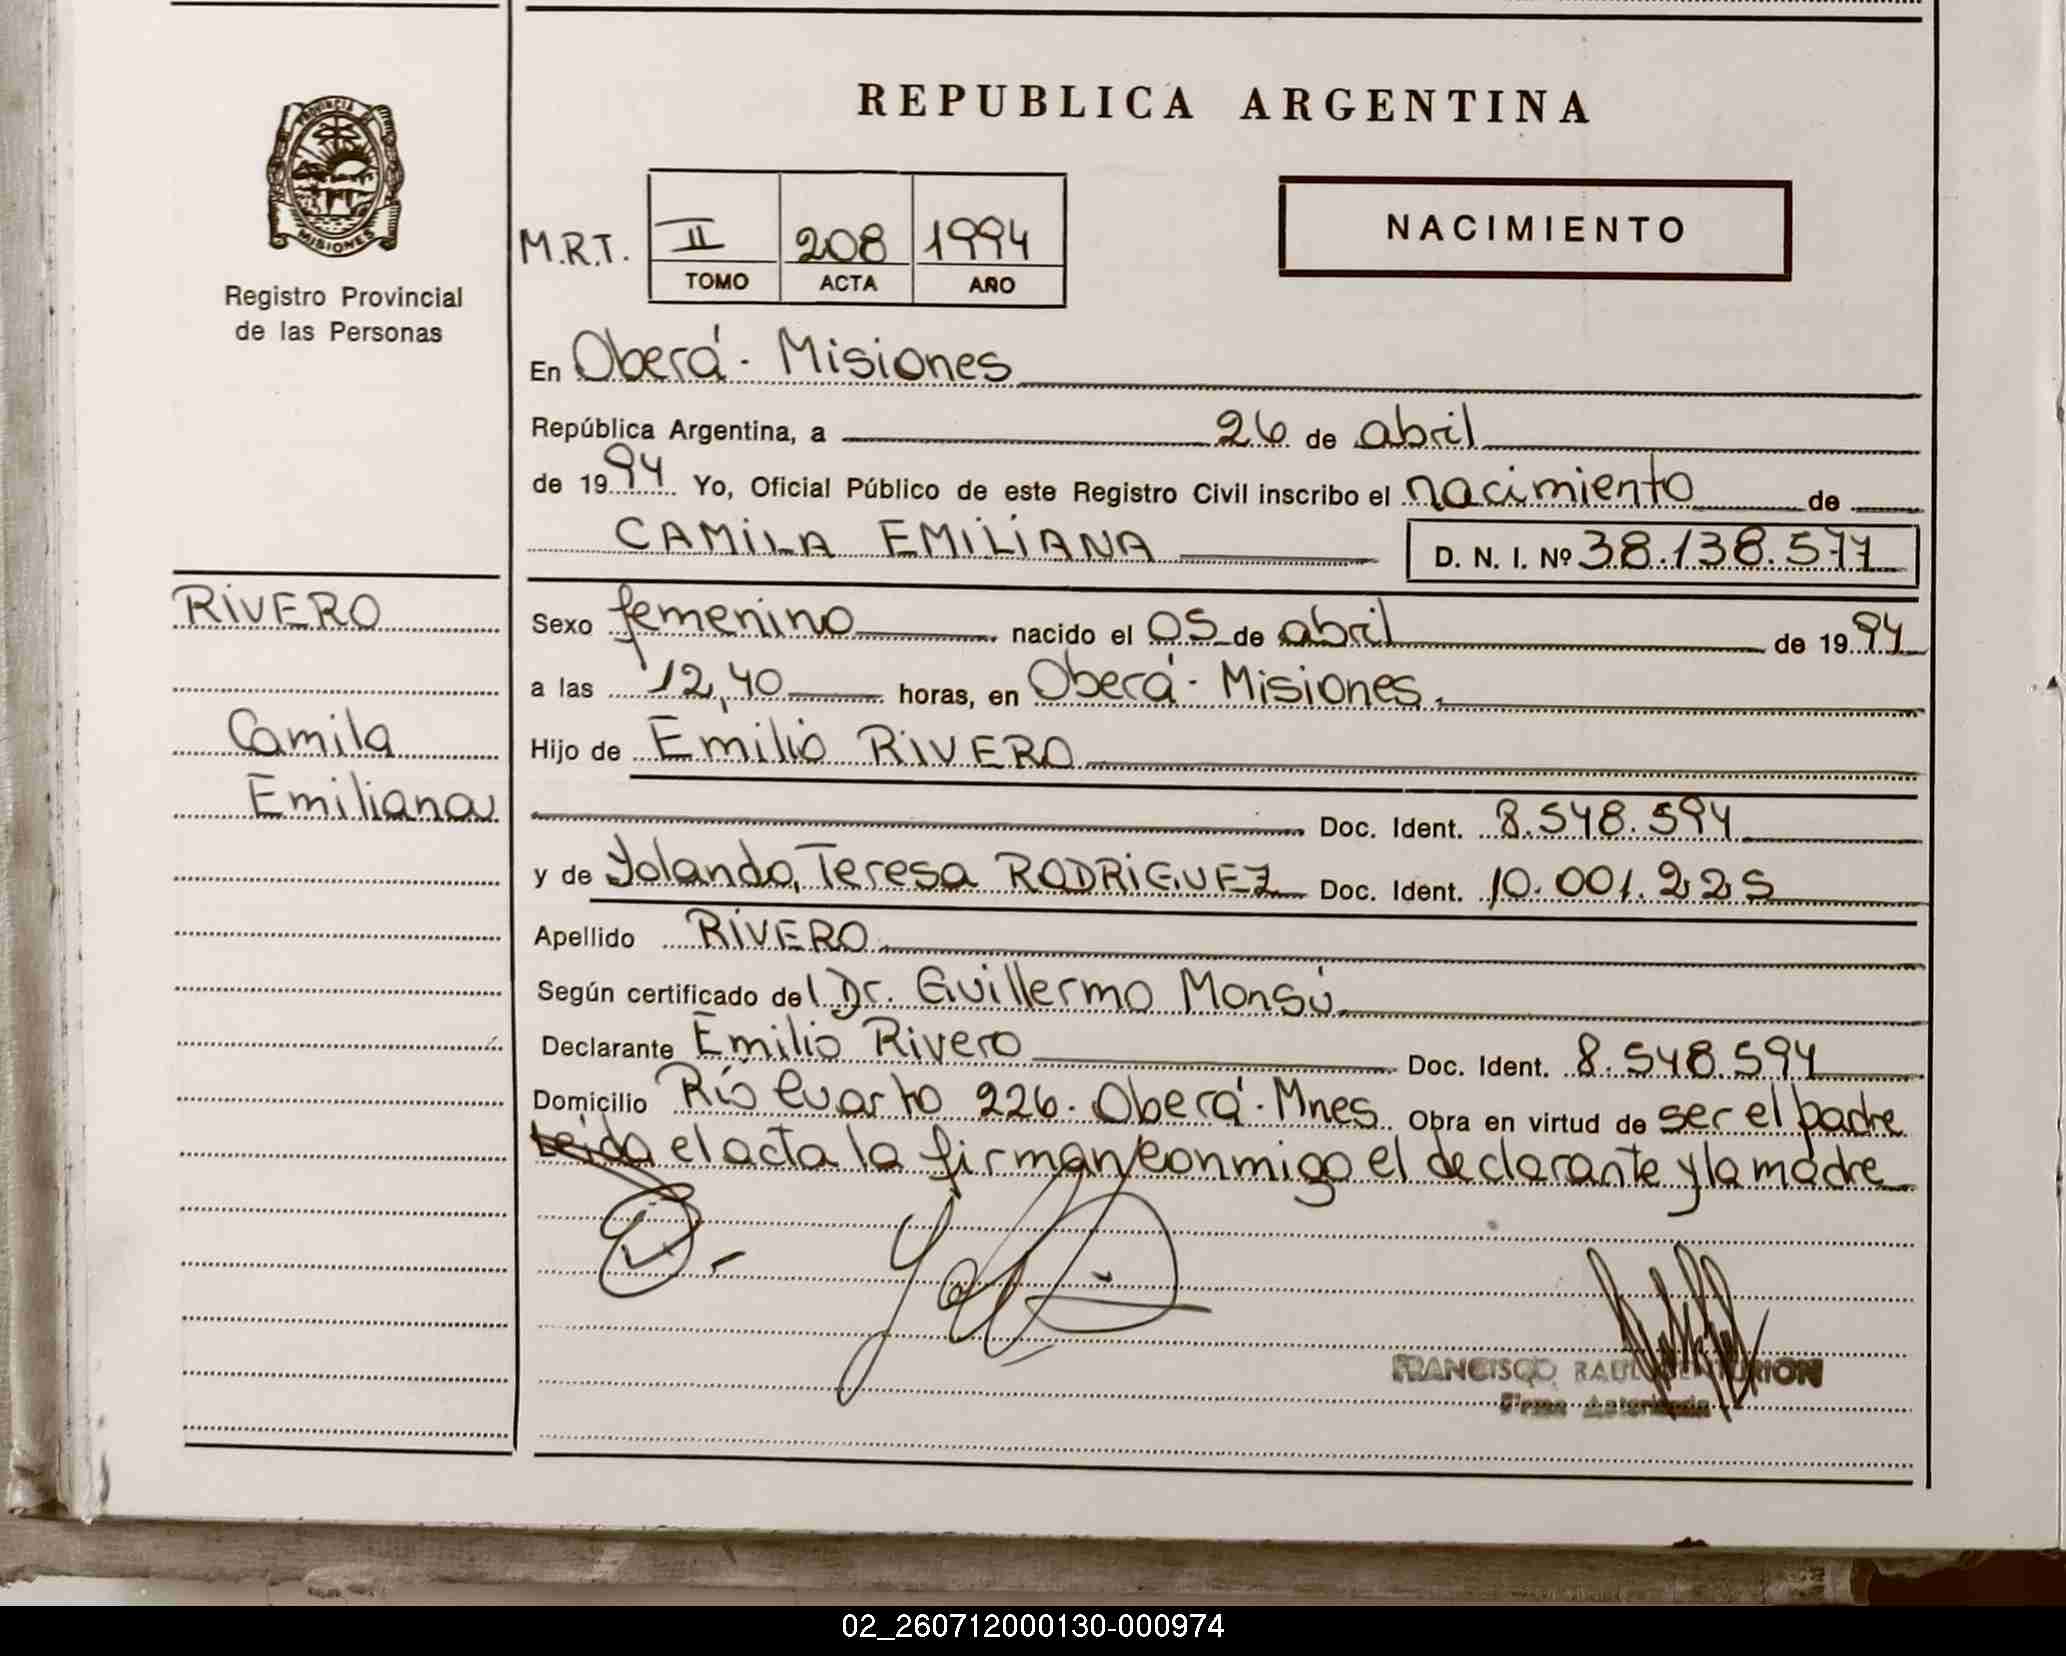 REPUBLICA ARGENTINA
PROVINCIA DE
MISIONES
Registro Provincial
de las Personas
M.R.T. II 208 1994
TOMO ACTA AÑO
NACIMIENTO
En Oberá - Misiones
República Argentina, a 26 de abril
de 1994 Yo, Oficial Público de este Registro Civil inscribo el nacimiento de
CAMILA EMILIANA D. N. I. Nº 38.138.577
RIVERO
Camila
Emiliana
Sexo femenino nacido el 05 de abril de 1994
a las 12,40 horas, en Oberá - Misiones.
Hijo de Emilio RIVERO
Doc. Ident. 8.548.594
y de Yolanda Teresa RODRIGUEZ Doc. Ident. 10.001.225
Apellido RIVERO
Según certificado del Dr. Guillermo Monsú.
Declarante Emilio Rivero Doc. Ident. 8.548.594
Domicilio Río Cuarto 226. Oberá - Mnes. Obra en virtud de ser el padre
Leida el acta la firman conmigo el declarante y la madre
FRANCISCO RAUL CENTURION
Firma Autorizada
02_260712000130-000974